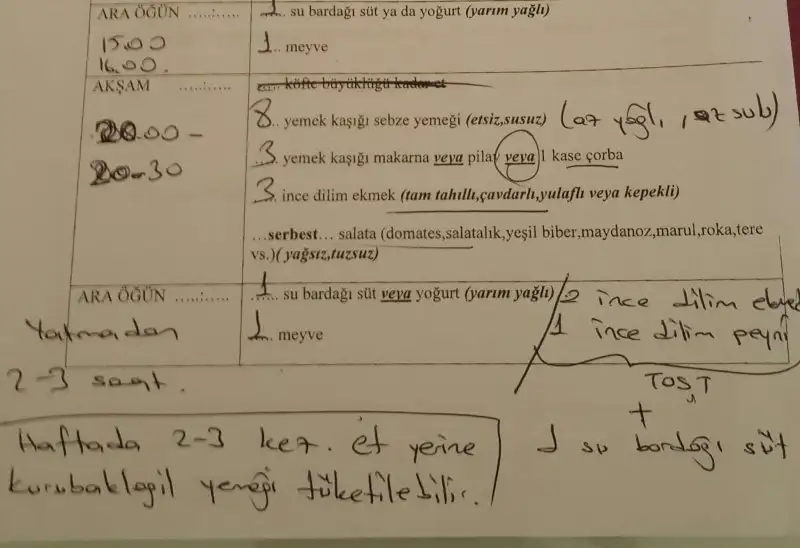 ARA ÖĞÜN ......:...... 1.. su bardağı süt ya da yoğurt (yarım yağlı)
15.00 1.. meyve
16.00.
AKŞAM ......:...... köfte büyüklüğü kadar et
8.. yemek kaşığı sebze yemeği (etsiz,susuz) (az yağlı, az sulu)
20.00 - 3. yemek kaşığı makarna veya pilav veya 1 kase çorba
20-30 3. ince dilim ekmek (tam tahıllı,çavdarlı,yulaflı veya kepekli)
...serbest... salata (domates,salatalık,yeşil biber,maydanoz,marul,roka,tere
vs.)(yağsız,tuzsuz)
ARA ÖĞÜN ......:...... 1 su bardağı süt veya yoğurt (yarım yağlı) / 2 ince dilim ekmek
Yatmadan 1.. meyve 1 ince dilim peynir
2-3 saat. TOST
+
Haftada 2-3 kez. et yerine 1 su bardağı süt
kurubaklagil yemeği tüketilebilir.